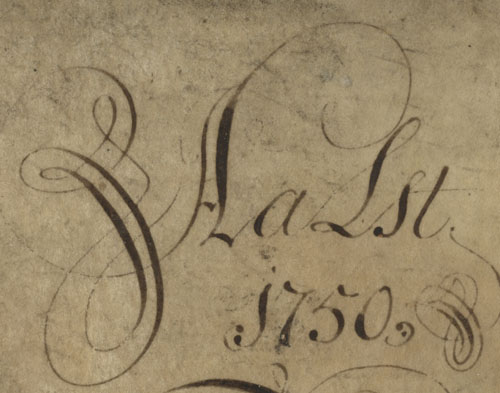 AaLst.
1750.